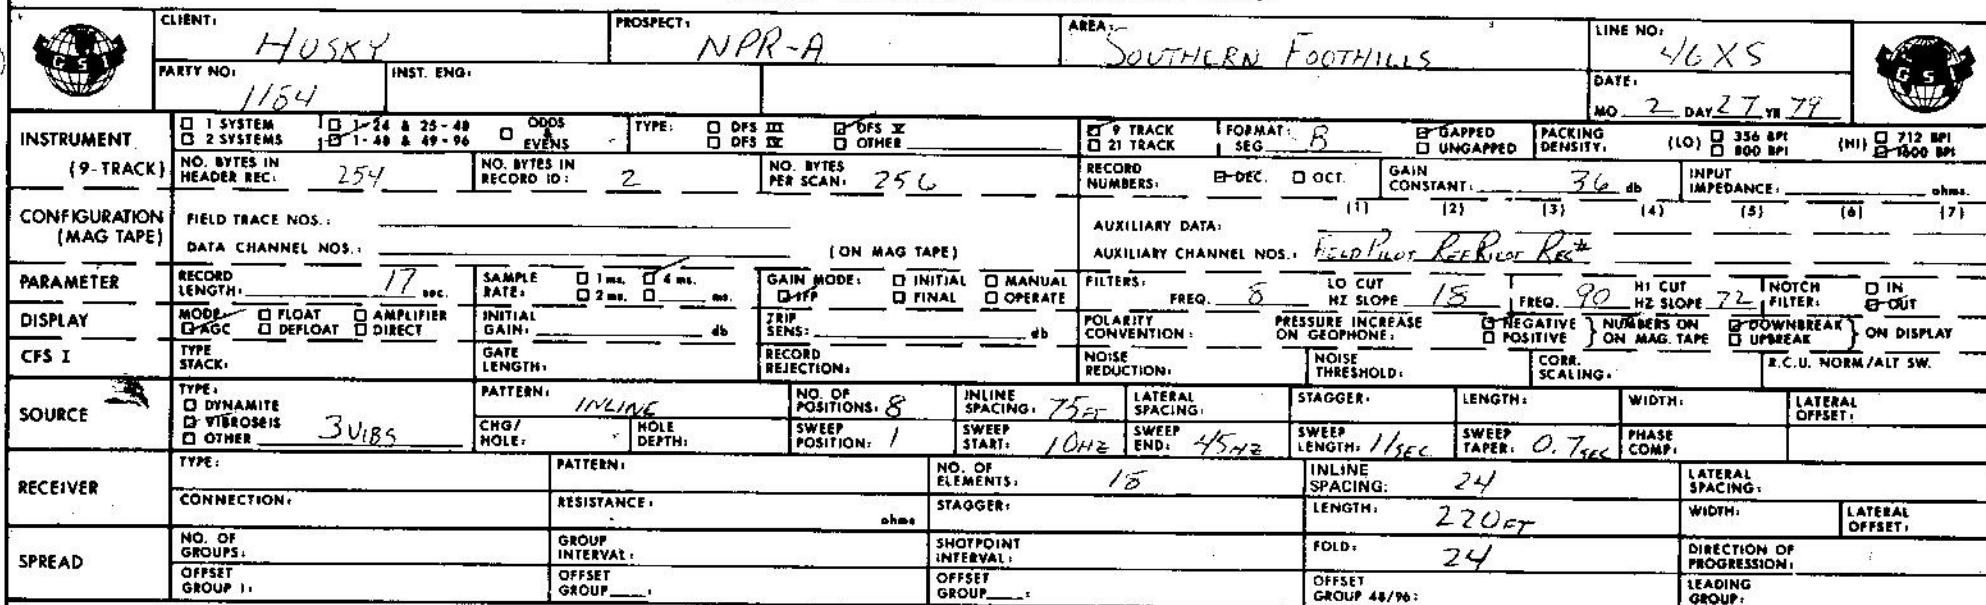 CLIENT: HUSKY PROSPECT: NPR-A AREA: SOUTHERN FOOTHILLS LINE NO: 46X5
GSI GSI
PARTY NO: 1154 INST. ENG: DATE: MO 2 DAY 27 YR 79
INSTRUMENT □ 1 SYSTEM □ 1-24 & 25-48 □ ODDS & EVENS TYPE: □ DFS III ☑ DFS V ☑ 9 TRACK FORMAT: SEG B ☑ GAPPED PACKING DENSITY: (LO) □ 356 BPI (HI) □ 712 BPI
□ 2 SYSTEMS ☑ 1-48 & 49-96 □ DFS IV □ OTHER □ 21 TRACK □ UNGAPPED □ 800 BPI ☑ 1600 BPI
(9-TRACK) NO. BYTES IN HEADER REC: 254 NO. BYTES IN RECORD ID: 2 NO. BYTES PER SCAN: 256 RECORD NUMBERS: ☑ DEC. □ OCT. GAIN CONSTANT: 36 db INPUT IMPEDANCE: ohms.
CONFIGURATION (MAG TAPE) FIELD TRACE NOS.: AUXILIARY DATA: (1) (2) (3) (4) (5) (6) (7)
DATA CHANNEL NOS.: (ON MAG TAPE) AUXILIARY CHANNEL NOS.: FIELD PILOT REF PILOT REC#
PARAMETER RECORD LENGTH: 17 sec. SAMPLE RATE: □ 1 ms. ☑ 4 ms. □ 2 ms. □ ms. GAIN MODE: □ INITIAL □ MANUAL ☑ IFP □ FINAL □ OPERATE FILTERS: FREQ. 8 LO CUT HZ SLOPE 18 FREQ. 90 HI CUT HZ SLOPE 72 NOTCH FILTER: □ IN ☑ OUT
DISPLAY MODE: ☑ AGC □ FLOAT □ DEFLOAT □ AMPLIFIER □ DIRECT INITIAL GAIN: db TRIP SENS: db POLARITY CONVENTION: PRESSURE INCREASE ON GEOPHONE: ☑ NEGATIVE □ POSITIVE } NUMBERS ON ON MAG. TAPE ☑ DOWNBREAK □ UPBREAK } ON DISPLAY
CFS I TYPE STACK: GATE LENGTH: RECORD REJECTION: NOISE REDUCTION: NOISE THRESHOLD: CORR. SCALING: R.C.U. NORM/ALT SW.
SOURCE TYPE: □ DYNAMITE ☑ VIBROSEIS □ OTHER 3 VIBS PATTERN: INLINE NO. OF POSITIONS: 8 INLINE SPACING: 75 FT LATERAL SPACING: STAGGER: LENGTH: WIDTH: LATERAL OFFSET:
CHG/HOLE: HOLE DEPTH: SWEEP POSITION: 1 SWEEP START: 10HZ SWEEP END: 45HZ SWEEP LENGTH: 11SEC SWEEP TAPER: 0.7SEC PHASE COMP:
RECEIVER TYPE: PATTERN: NO. OF ELEMENTS: 18 INLINE SPACING: 24 LATERAL SPACING:
CONNECTION: RESISTANCE: ohms STAGGER: LENGTH: 220FT WIDTH: LATERAL OFFSET:
SPREAD NO. OF GROUPS: GROUP INTERVAL: SHOTPOINT INTERVAL: FOLD: 24 DIRECTION OF PROGRESSION:
OFFSET GROUP 1: OFFSET GROUP : OFFSET GROUP : OFFSET GROUP 48/96: LEADING GROUP: